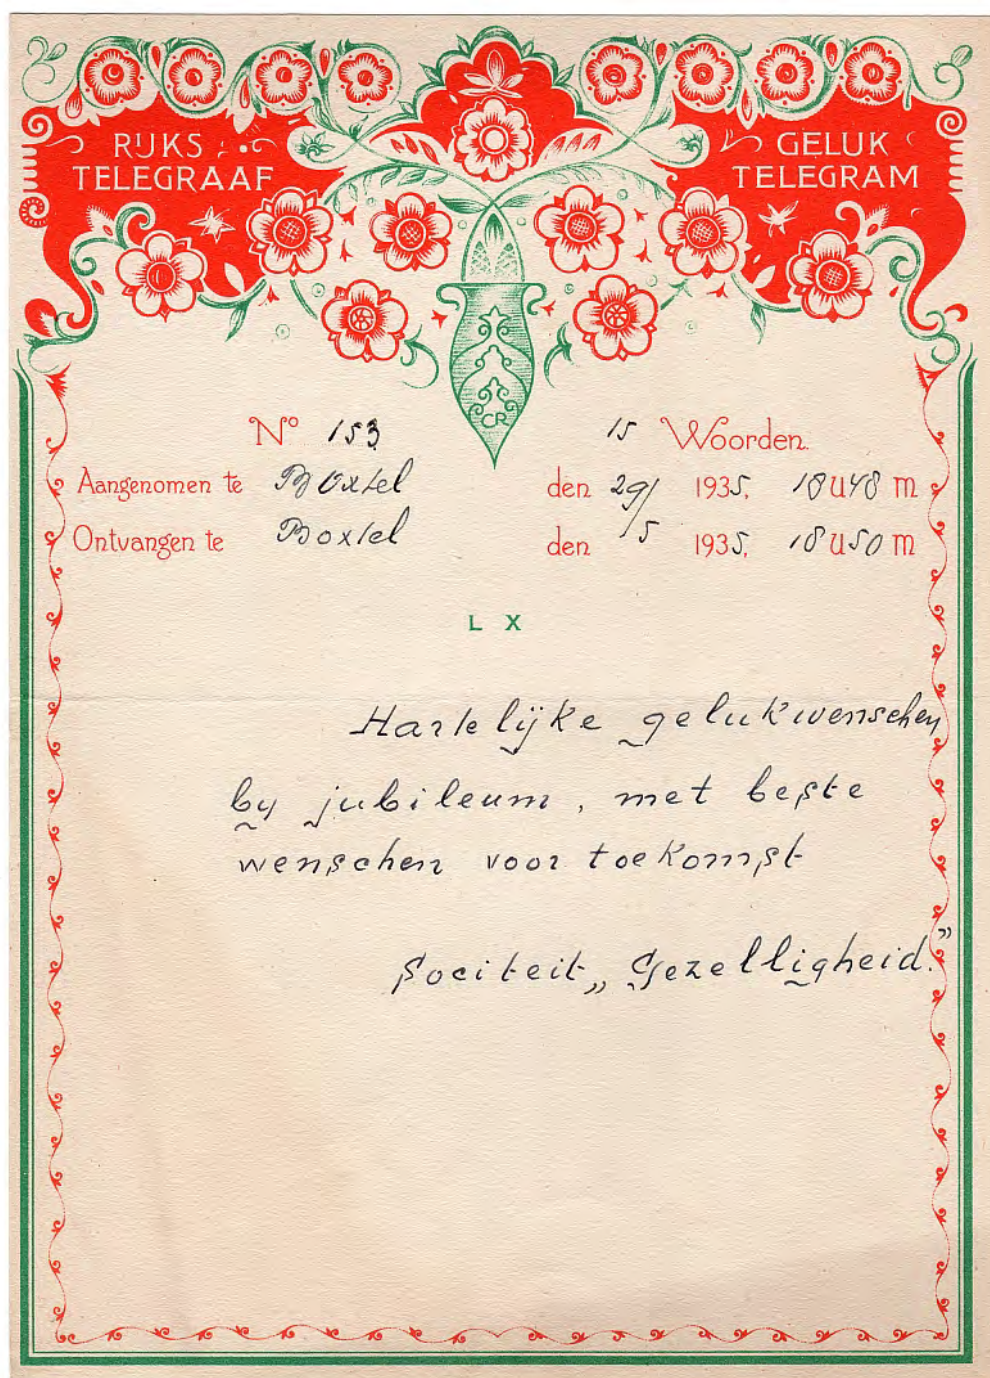 RIJKS
TELEGRAAF
GELUK
TELEGRAM
CR
Nº 153 15 Woorden.
Aangenomen te Boxtel den 29/ 1935, 18 U 48 m
Ontvangen te Boxtel den 5 1935, 18 U 50 m
L X
Hartelijke gelukwenschen
by jubileum, met beste
wenschen voor toekomst
Societeit „Gezelligheid.”